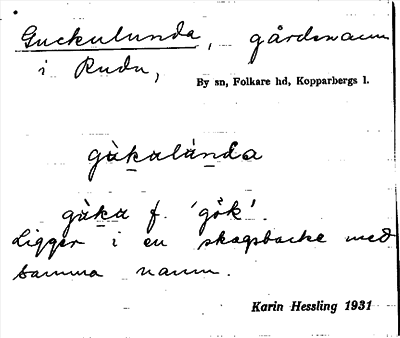 Guckulunda, gårdsnamn
i Rudu,
By sn, Folkare hd, Kopparbergs l.
gàkalànda
gàka f. 'gök'.
Ligger i en skogsbacke med
samma namn.
Karin Hessling 1931